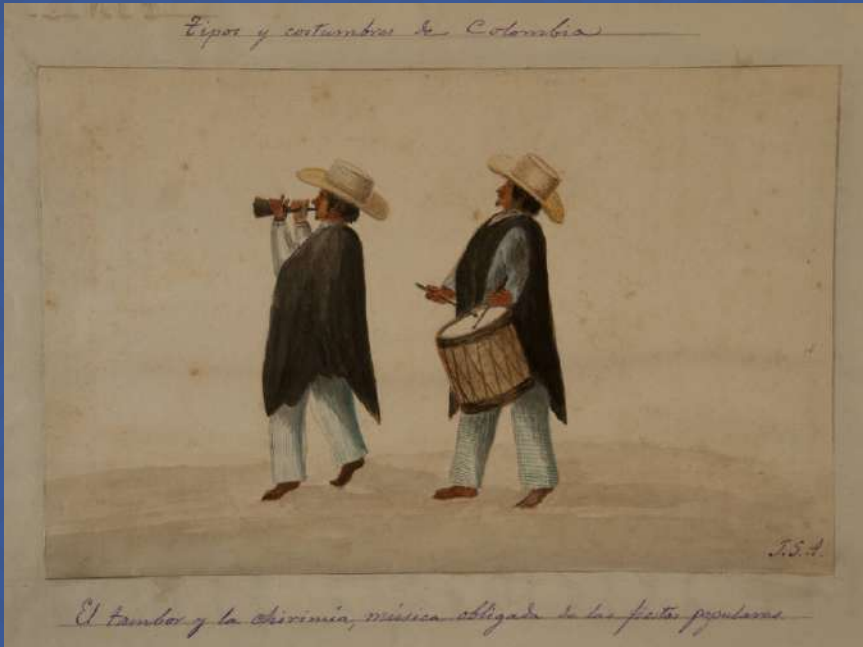 Tipos y costumbres de Colombia
J.S.A.
El tambor y la chirimía, música obligada de las fiestas populares